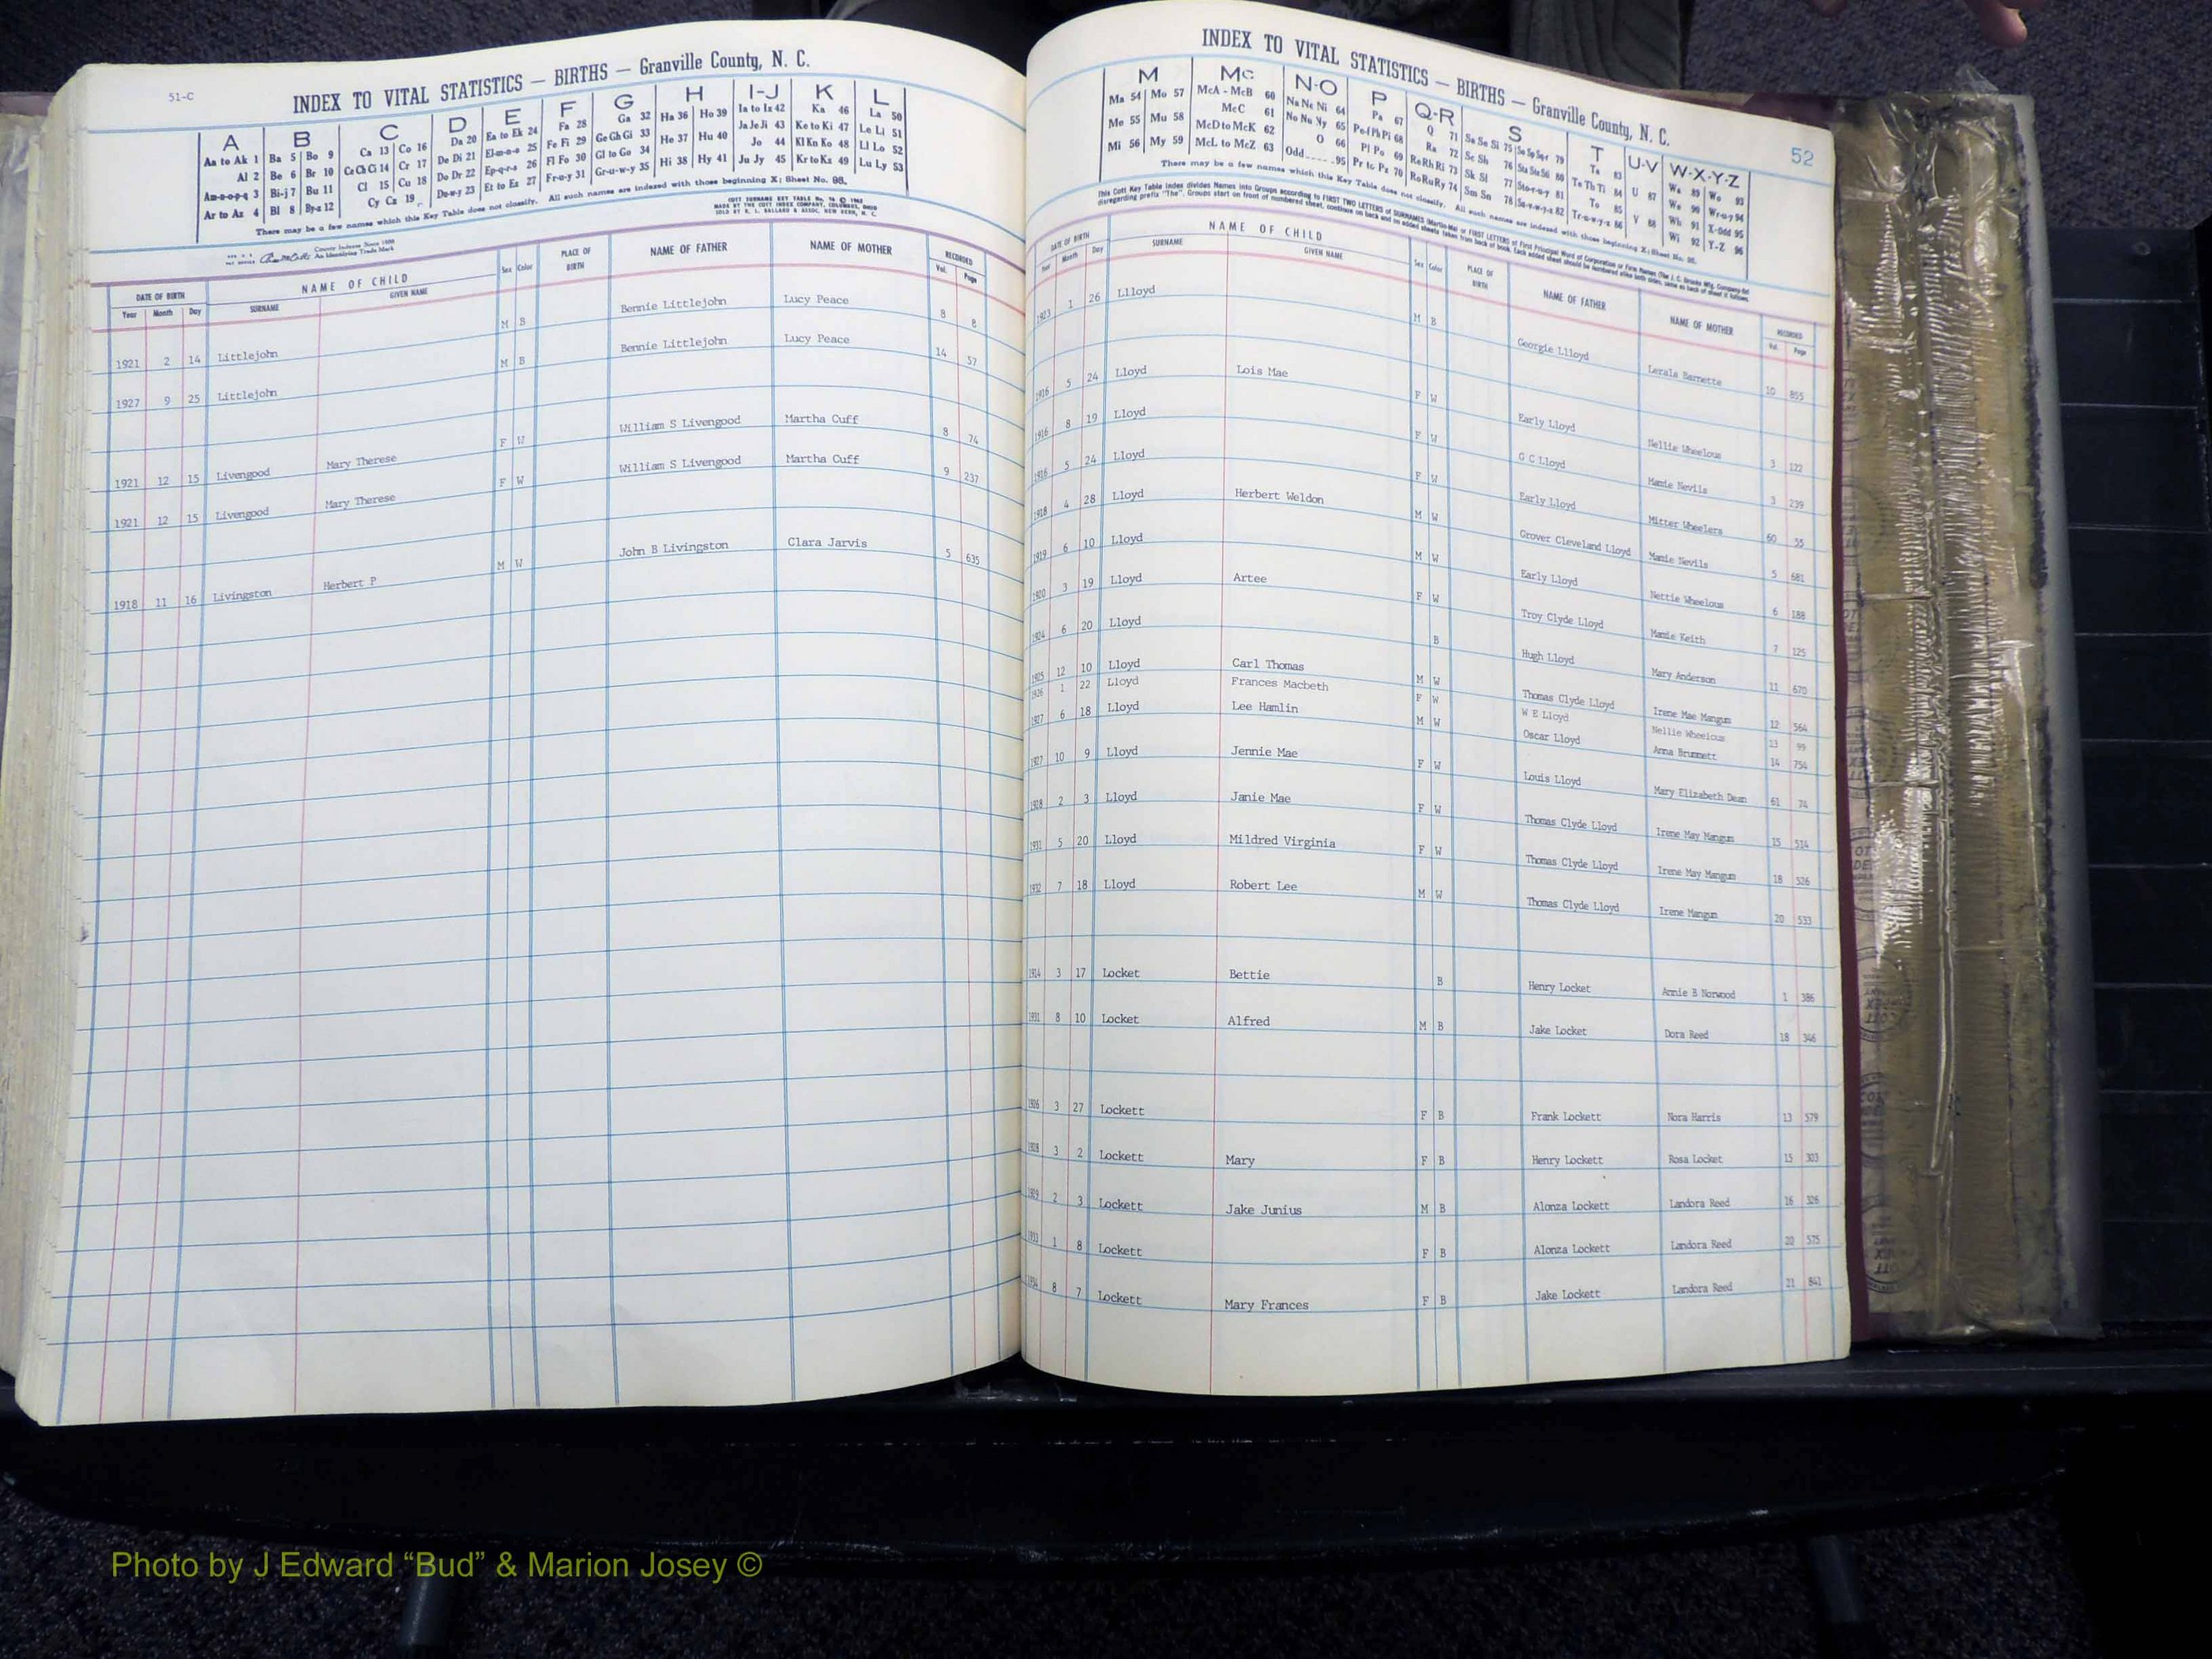 51-C
INDEX TO VITAL STATISTICS — BIRTHS — Granville County, N. C.
A B C D E F G H I-J K L
Aa to Ak 1 Ba 5 Bo 9 Ca 13 Co 16 Da 20 Ea to Ek 24 Fa 28 Ga 32 Ha 36 Ho 39 Ia to Iz 42 Ka 46 La 50
Al 2 Be 6 Br 10 Ce Ch Ci 14 Cr 17 De Di 21 El-m-n-o 25 Fe Fi 29 Ge Gh Gi 33 He 37 Hu 40 Ja Je Ji 43 Ke to Ki 47 Le Li 51
Am-n-o-p-q 3 Bi-j 7 Bu 11 Cl 15 Cu 18 Do Dr 22 Ep-q-r-s 26 Fl Fo 30 Gl to Go 34 Hi 38 Hy 41 Jo 44 Kl Kn Ko 48 Ll Lo 52
Ar to Az 4 Bl 8 By-z 12 Cy Cz 19 Du-w-y 23 Et to Ez 27 Fr-u-y 31 Gr-u-w-y 35 Ju Jy 45 Kr to Kz 49 Lu Ly 53
There may be a few names which this Key Table does not classify. All such names are indexed with those beginning X; Sheet No. 98.
DATE OF BIRTH NAME OF CHILD Sex Color PLACE OF BIRTH NAME OF FATHER NAME OF MOTHER RECORDED
Year Month Day SURNAME GIVEN NAME Vol. Page
1921 2 14 Littlejohn M B Bennie Littlejohn Lucy Peace 8 8
1927 9 25 Littlejohn M B Bennie Littlejohn Lucy Peace 14 57
1921 12 15 Livengood Mary Therese F W William S Livengood Martha Cuff 8 74
1921 12 15 Livengood Mary Therese F W William S Livengood Martha Cuff 9 237
1918 11 16 Livingston Herbert P M W John B Livingston Clara Jarvis 5 635
INDEX TO VITAL STATISTICS — BIRTHS — Granville County, N. C.
52
M Mc N-O P Q-R S T U-V W-X-Y-Z
Ma 54 Mo 57 McA - McB 60 Na Ne Ni 64 Pa 67 Q 71 Sa Se Si 75 79 Ta 83 U 87 Wa 89 Wo 93
Me 55 Mu 58 McC 61 No Nu Ny 65 Pe-f Ph Pi 68 Ra 72 Sc Sh 76 80 Te Th Ti 84 V 88 We 90 Wr-u-y 94
Mi 56 My 59 McD to McK 62 O 66 Pl Po 69 Re Rh Ri 73 Sk Sl 77 81 To 85 Wh 91 X-Odd 95
McL to McZ 63 Odd 95 Pr to Pz 70 Ro Ru Ry 74 Sm Sn 78 82 Tr-u-w-y-z 86 Wi 92 Y-Z 96
There may be a few names which this Key Table does not classify. All such names are indexed with those beginning X; Sheet No. 98.
DATE OF BIRTH NAME OF CHILD Sex Color PLACE OF BIRTH NAME OF FATHER NAME OF MOTHER RECORDED
Year Month Day SURNAME GIVEN NAME Vol. Page
1923 1 26 Llloyd M B Georgie Llloyd Lerala Barnette 10 855
1916 5 24 Lloyd Lois Mae F W Early Lloyd Nellie Wheelous 3 122
1916 8 19 Lloyd F W G C Lloyd Mamie Nevils 3 239
1916 5 24 Lloyd F W Early Lloyd Mitter Wheelers 60 55
1918 4 28 Lloyd Herbert Weldon M W Grover Cleveland Lloyd Mamie Nevils 5 681
1919 6 10 Lloyd M W Early Lloyd Nettie Wheelous 6 188
1920 3 19 Lloyd Artee F W Troy Clyde Lloyd Mamie Keith 7 125
1924 6 20 Lloyd B Hugh Lloyd Mary Anderson 11 670
1925 12 10 Lloyd Carl Thomas M W Thomas Clyde Lloyd Irene Mae Mangum 12 564
1926 1 22 Lloyd Frances Macbeth F W W E Lloyd Nellie Wheelous 13 99
1927 6 18 Lloyd Lee Hamlin M W Oscar Lloyd Anna Brummett 14 754
1927 10 9 Lloyd Jennie Mae F W Louis Lloyd Mary Elizabeth Dean 61 74
1928 2 3 Lloyd Janie Mae F W Thomas Clyde Lloyd Irene May Mangum 15 514
1931 5 20 Lloyd Mildred Virginia F W Thomas Clyde Lloyd Irene May Mangum 18 526
1932 7 18 Lloyd Robert Lee M W Thomas Clyde Lloyd Irene Mangum 20 533
1914 3 17 Locket Bettie B Henry Locket Annie B Norwood 1 386
1931 8 10 Locket Alfred M B Jake Locket Dora Reed 18 346
1926 3 27 Lockett F B Frank Lockett Nora Harris 13 579
1928 3 2 Lockett Mary F B Henry Lockett Rosa Locket 15 303
1929 2 3 Lockett Jake Junius M B Alonza Lockett Landora Reed 16 326
1933 1 8 Lockett F B Alonza Lockett Landora Reed 20 575
1934 8 7 Lockett Mary Frances F B Jake Lockett Landora Reed 21 841
Photo by J Edward “Bud” & Marion Josey ©